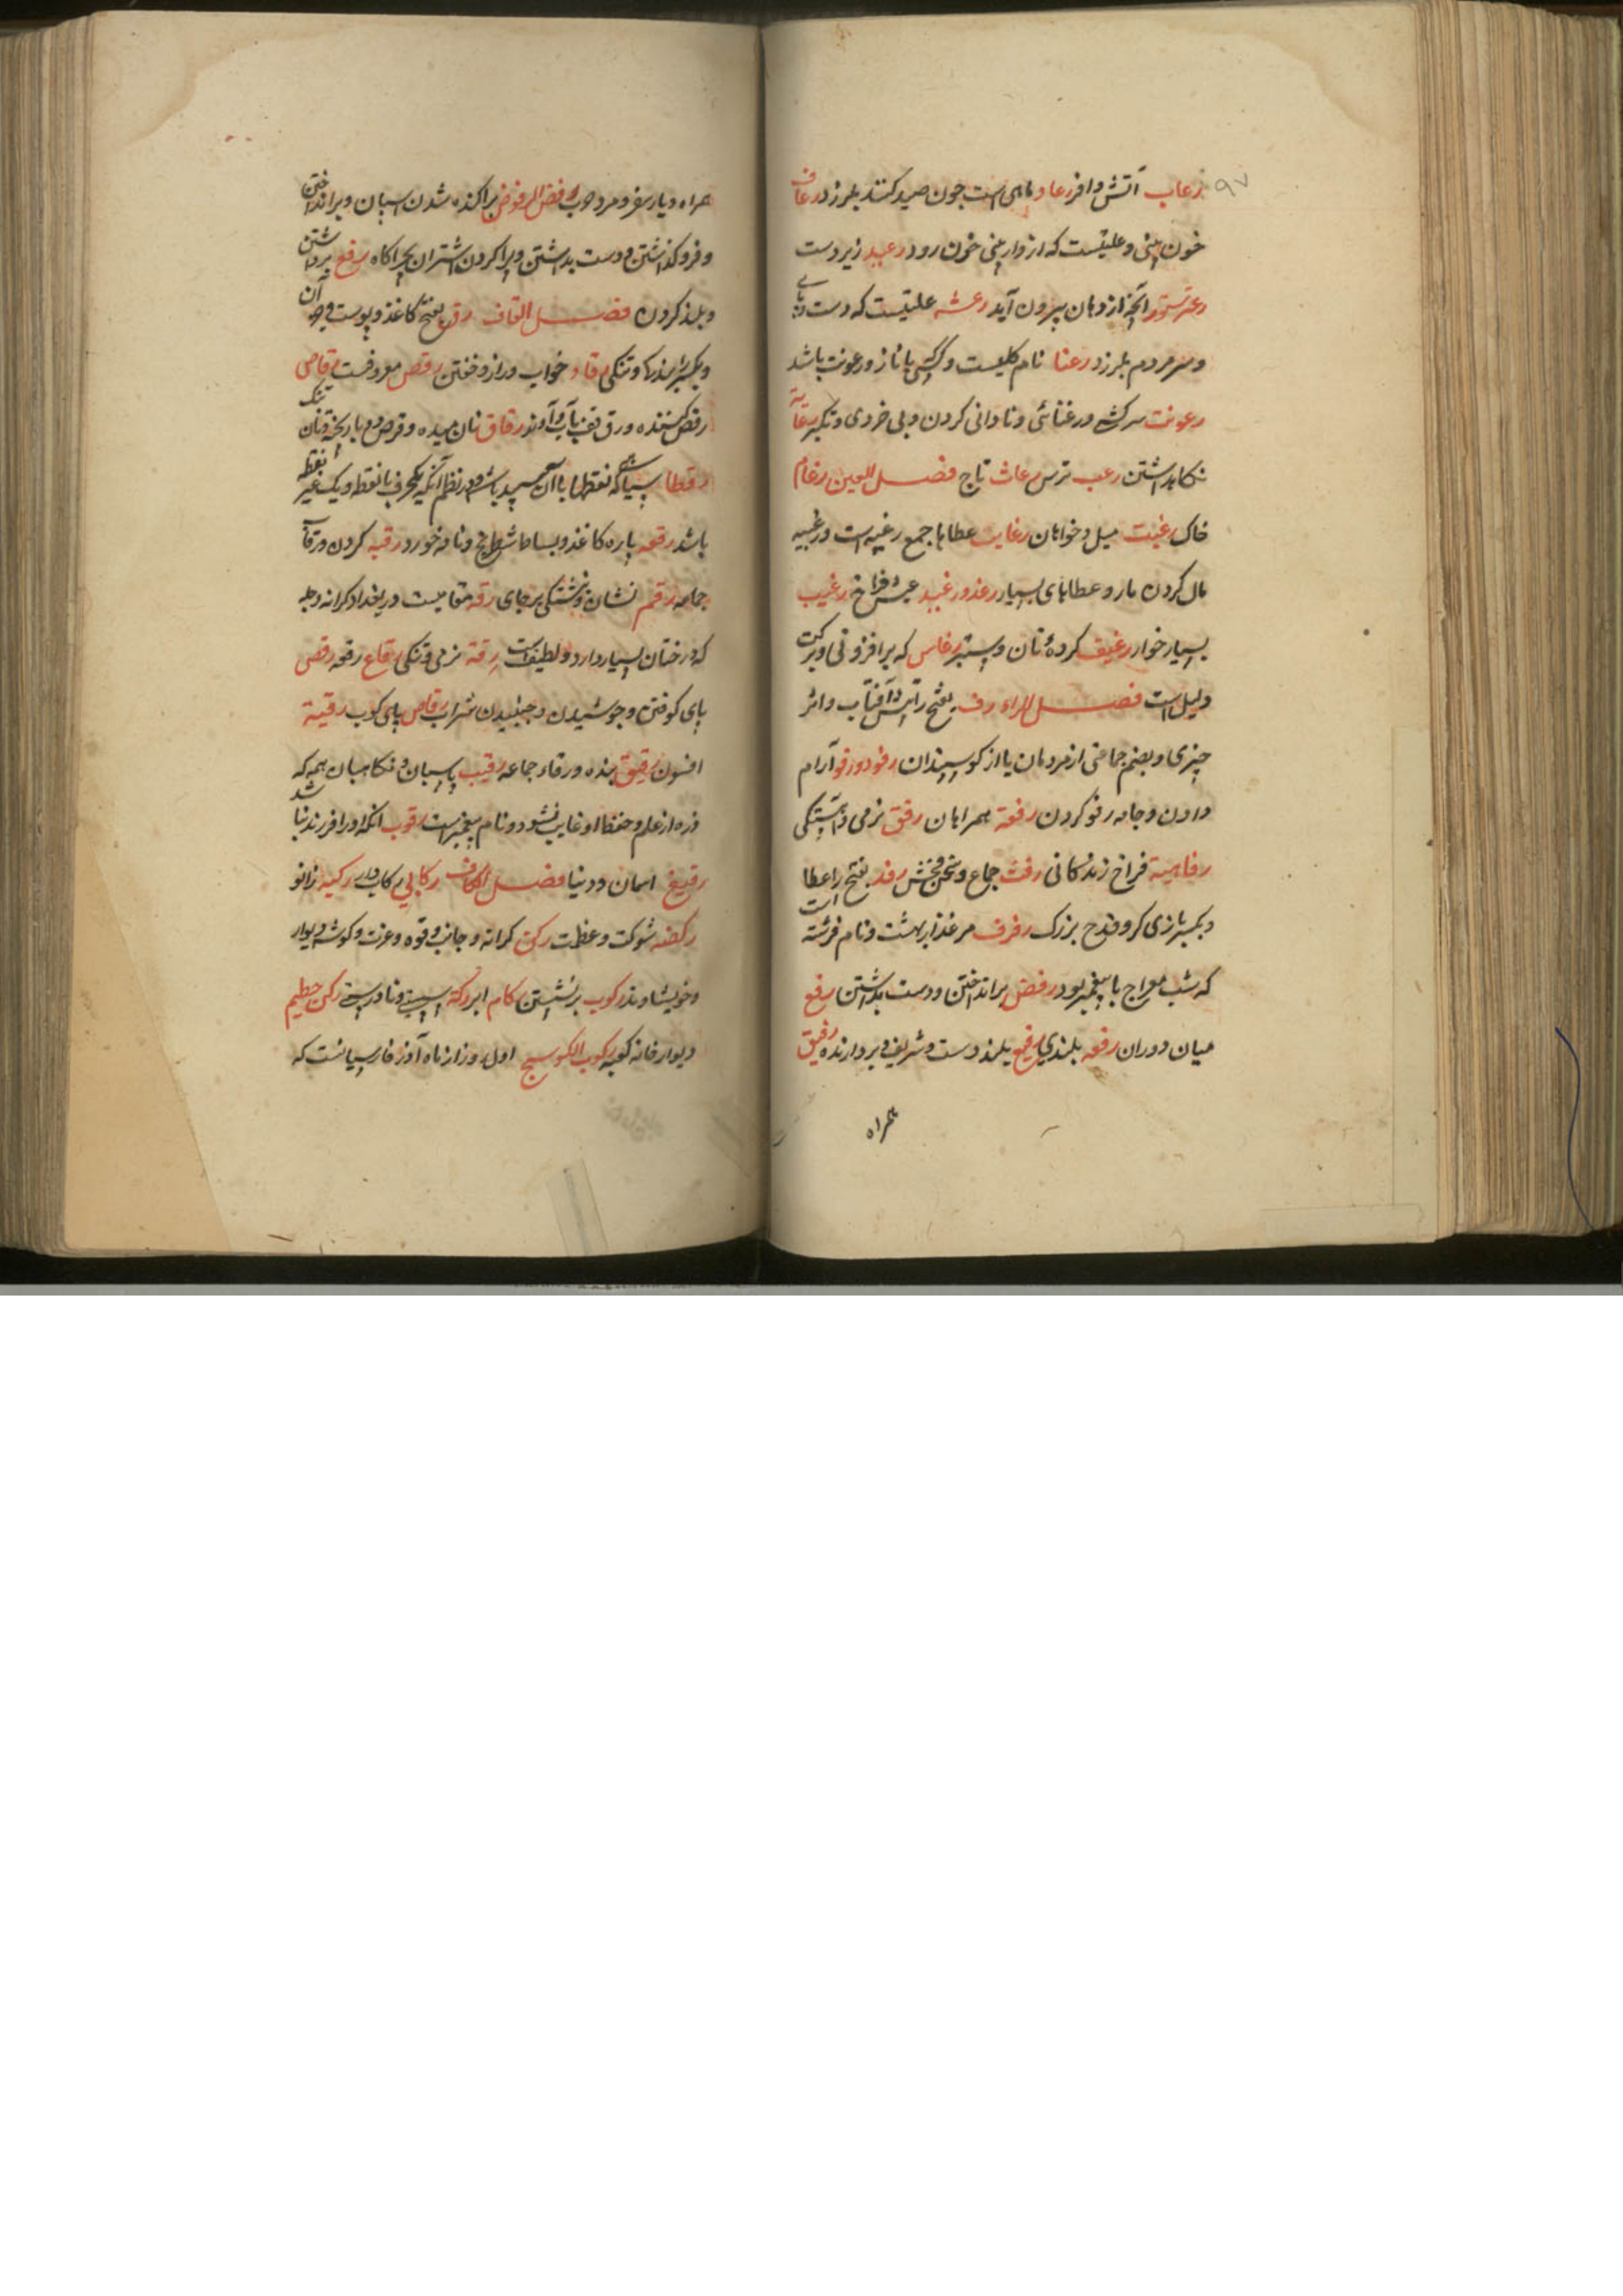 ۹۷
رعاب آتش و افر رعاد ماهی است چون صید کنند بلرزد رعاف
خون بینی و علتیست که از وار بینی خون رود رعید زیر دست
آنچه از دهان بیرون آید رعشه علتیست که دست و پای
و سر مردم بلرزد رعنا نام کلیست و کسی با ناز و رعونت باشد
رعونت سرکشی و رعنائی و نادانی کردن و بی خردی و تکبر رعایة
نکاهداشتن رعب ترس رعاث تاج فصل الغین رغام
خاک رغبت میل و خواهان رغایب عطاها جمع رغیبه است و رغیبه
مال کردن مار و عطاهای بسیار رغد و رغید عیش فراخ رغیب
بسیار خوار رغیف کردهٔ نان و سبتبر رغاس که بر افزونی و برکت
دلیل است فصل الراء رف بفتح را آتش و آفتاب و اثر
چیزی و بضم جماعتی از مردمان یا از کوسپندان رفود و رفو آرام
دادن و جامه رفو کردن رفقة همراهان رفق نرمی و آهستکی
رفاهیة فراخ زندکانی رفث جماع و سخن فحش رفد بفتح را عطا
و بکسر یاری کر و قدح بزرک رفرف مرغزار بهشت و نام فرشته است
که شب معراج با پیغمبر بود رفض بر انداختن و دست بداشتن رفع
میان دوران رفعه بلندی رفیع بلند دست و شریف و بردارنده رفیق
همراه
همراه و یار سفر و مرد خوب رفض الرفوض پراکنده شدن اسبان و برانداختن
و فرو کذاشتن و دست بداشتن و رها کردن اشتران بچراکاه رفع برداشتن
و بلند کردن فصل القاف رق بفتح کاغذ و پوست
و بکسر بندها و تنکی رقاد خواب و دراز و خفتن رقص معروفست رقاص
رقص کننده و رق تف بآب و آوند رقاق نان میده و قرص و باریک و نان تنک
رقطا سیاه که نقطها با آن سپید باشد و در نظم آنکه یک حرف با نقطه و یک غیر نقطه
باشد رقعه پاره کاغذ و بساط شطرنج و نامه خورد رقیه کردن و رقاء
جامه رقم نشان و نبشتکی بر جای رقه مقامیست در بغداد کرانه دجله
که درختان بسیار دارد و لطیف است رقة نرمی و تنکی رقاع رقعه رقص
پای کوفتن و جوشیدن و جنبیدن شراب رقاص پای کوب رقیة
افسون رقیق بنده و رقاء جماعه رقیب پاسبان و نکاهبان همه که
ذره از علم و حفظ او غایب نشود و نام پیغمبرست رقوب انکه او را فرزند نباشد
رقیع اسمان و دنیا فصل الکاف رکابی رکاب دار رکبه زانو
رکضه شوکت و عظمت رکن کرانه و جانب و قوه و عزت و کوشه دیوار
و خویشاوند رکوب برنشستن رکام ابر رکة سستی و نادرستی رکن حطیم
دیوار خانه کعبه رکوب الکوسج اول روز از ماه آذر فارسیانست که